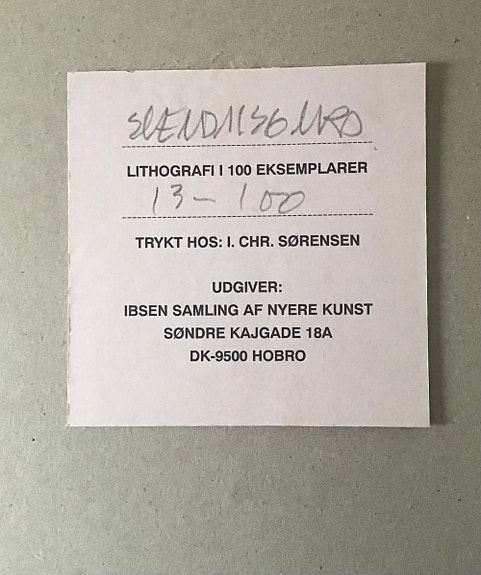 LITHOGRAFI I 100 EKSEMPLARER
13 – 100
TRYKT HOS: I. CHR. SØRENSEN
UDGIVER:
IBSEN SAMLING AF NYERE KUNST
SØNDRE KAJGADE 18A
DK-9500 HOBRO